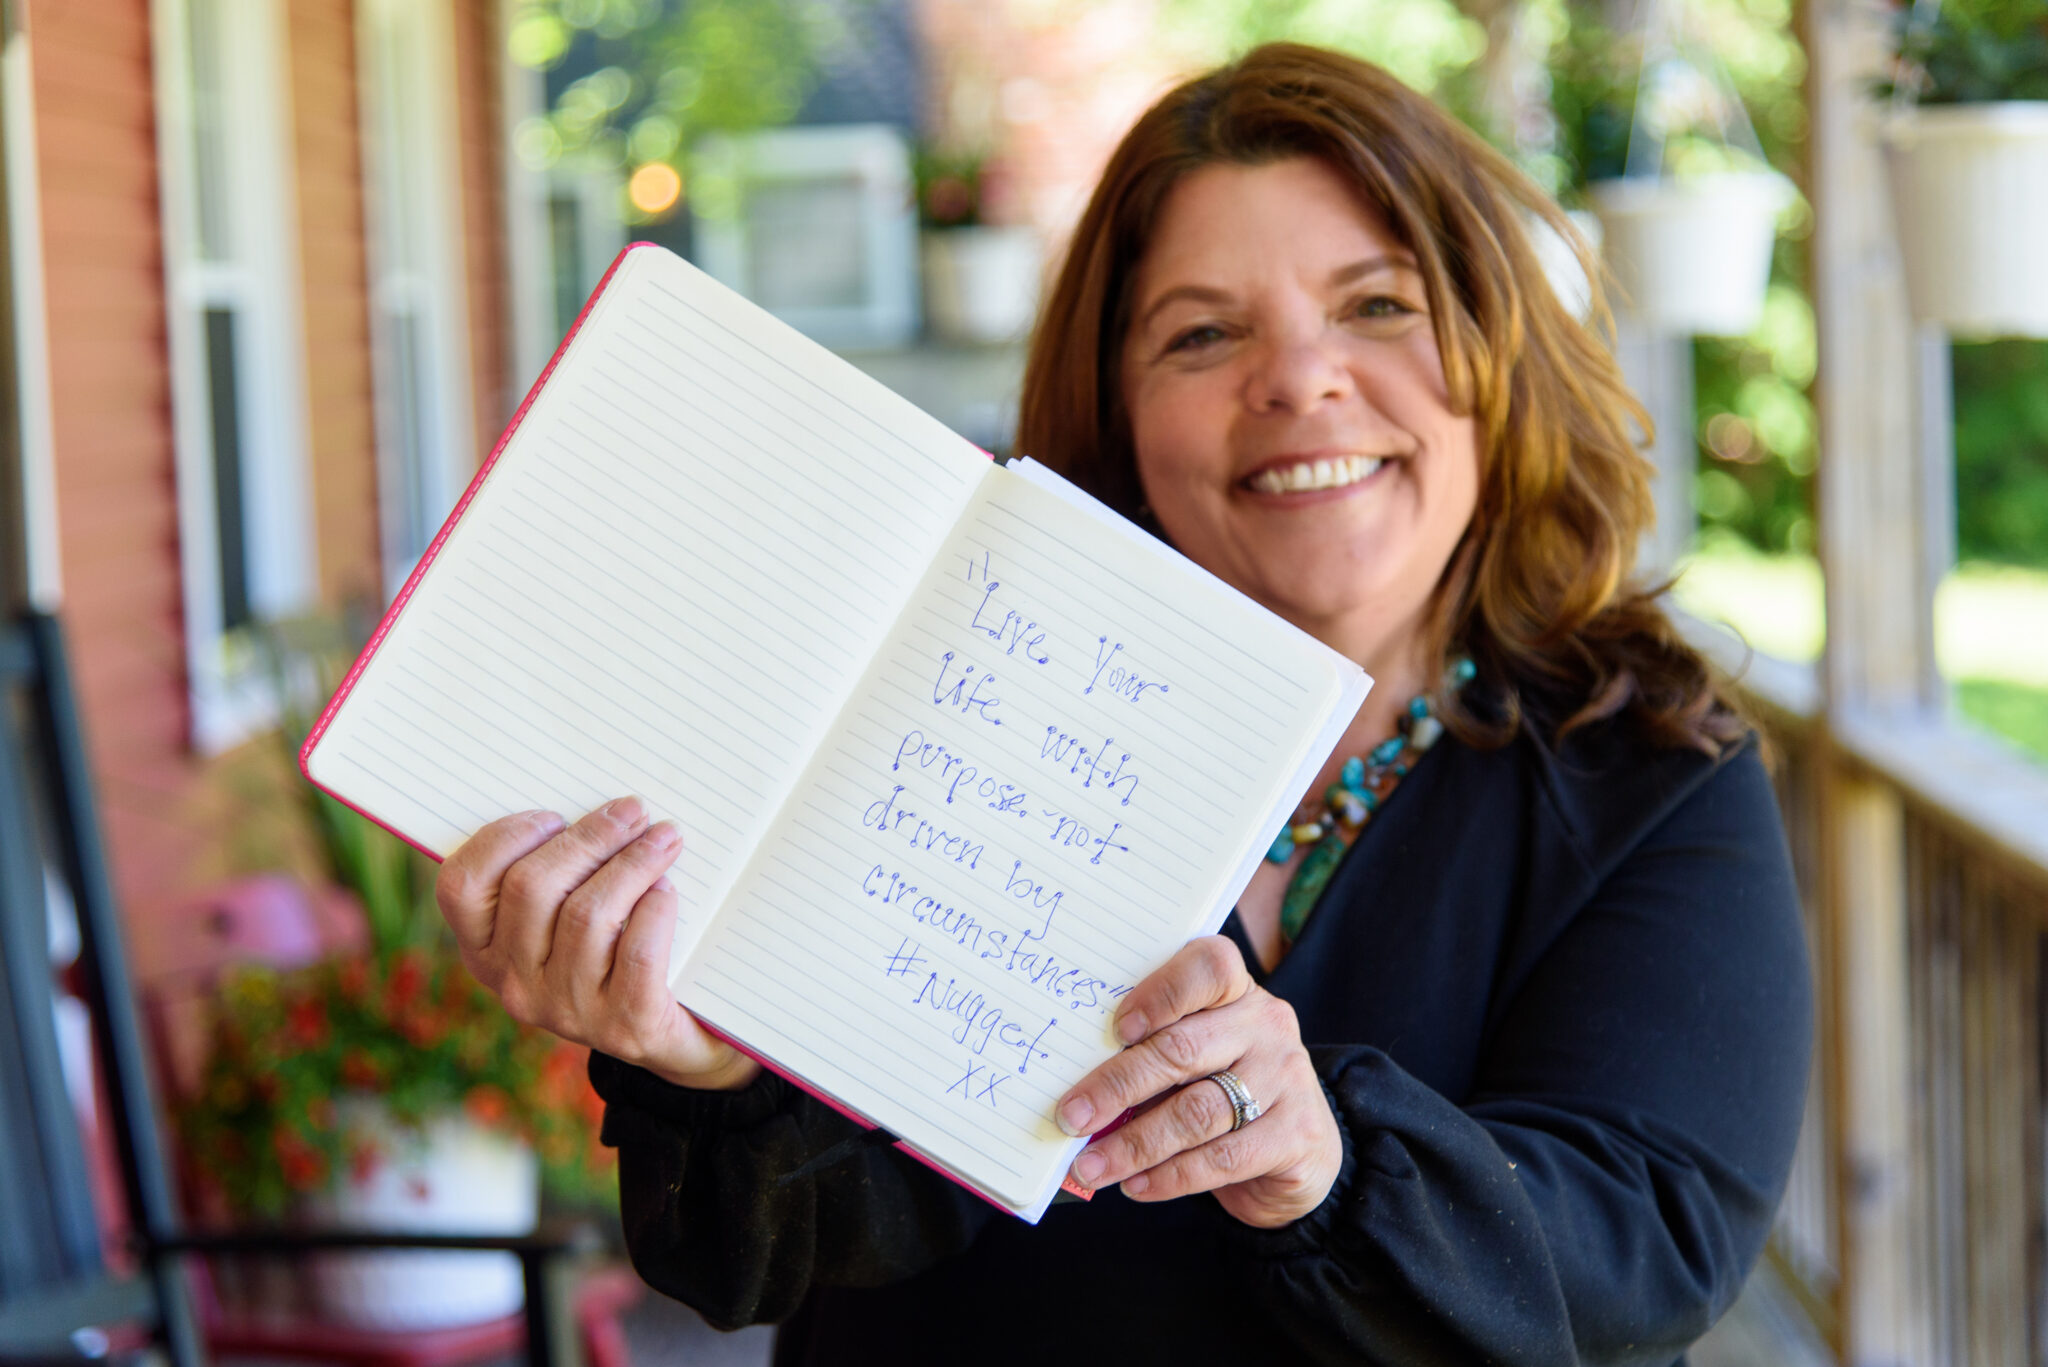 "Live Your
life with
purpose ~ not
driven by
circumstances."
#Nugget
XX